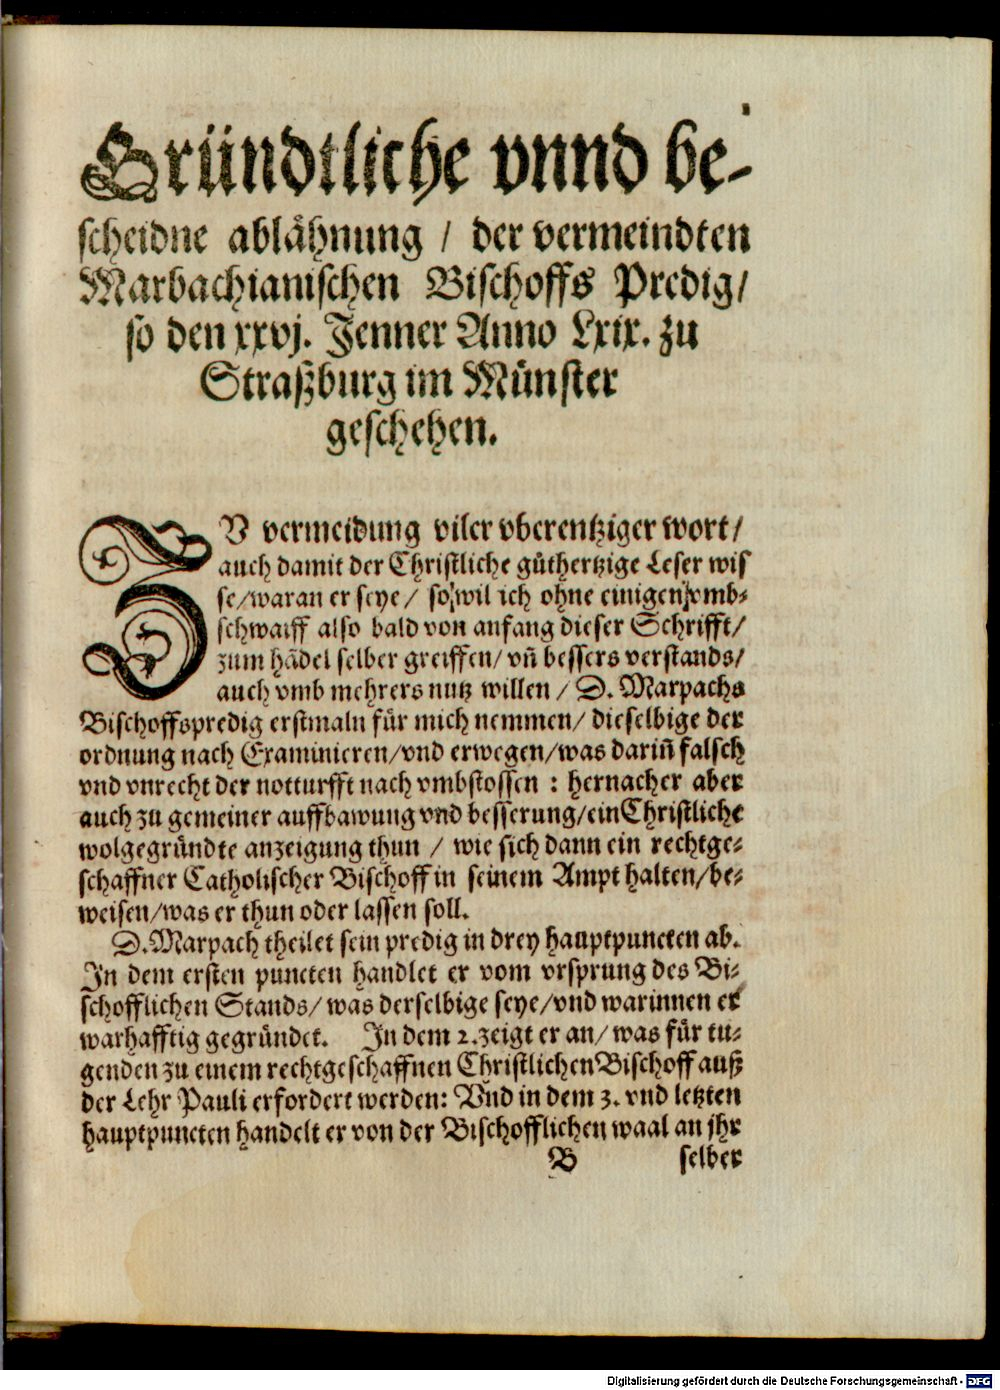 Gründtliche vnnd be-
scheidne ablähnung / der vermeindten
Marbachianischen Bischoffs Predig/
so den xxvj. Jenner Anno Lxix. zu
Straßburg im Münster
geschehen.
ZV vermeidung viler vberentziger wort/
auch damit der Christliche güthertzige Leser wis
se/waran er seye / so wil ich ohne einigen vmb-
schwaiff also bald von anfang dieser Schrifft/
zum hãdel selber greiffen/ vñ bessers verstands/
auch vmb mehrers nutz willen / D. Marpachs
Bischoffspredig erstmaln für mich nemmen/ dieselbige der
ordnung nach Examinieren/vnd erwegen/was dariñ falsch
vnd vnrecht der notturfft nach vmbstossen : hernacher aber
auch zu gemeiner auffbawung vnd besserung/ein Christliche
wolgegründte anzeigung thun / wie sich dann ein rechtge-
schaffner Catholischer Bischoff in seinem Ampt halten/be-
weisen/was er thun oder lassen soll.
D. Marpach theilet sein predig in drey hauptpuncten ab.
In dem ersten puncten handlet er vom vrsprung des Bi-
schofflichen Stands/ was derselbige seye/vnd warinnen er
warhafftig gegründet. In dem 2. zeigt er an/ was für tu-
genden zu einem rechtgeschaffnen Christlichen Bischoff auß
der Lehr Pauli erfordert werden: Vnd in dem 3. vnd letzten
hauptpuncten handelt er von der Bischofflichen waal an jhr
B selber
Digitalisierung gefördert durch die Deutsche Forschungsgemeinschaft - DFG